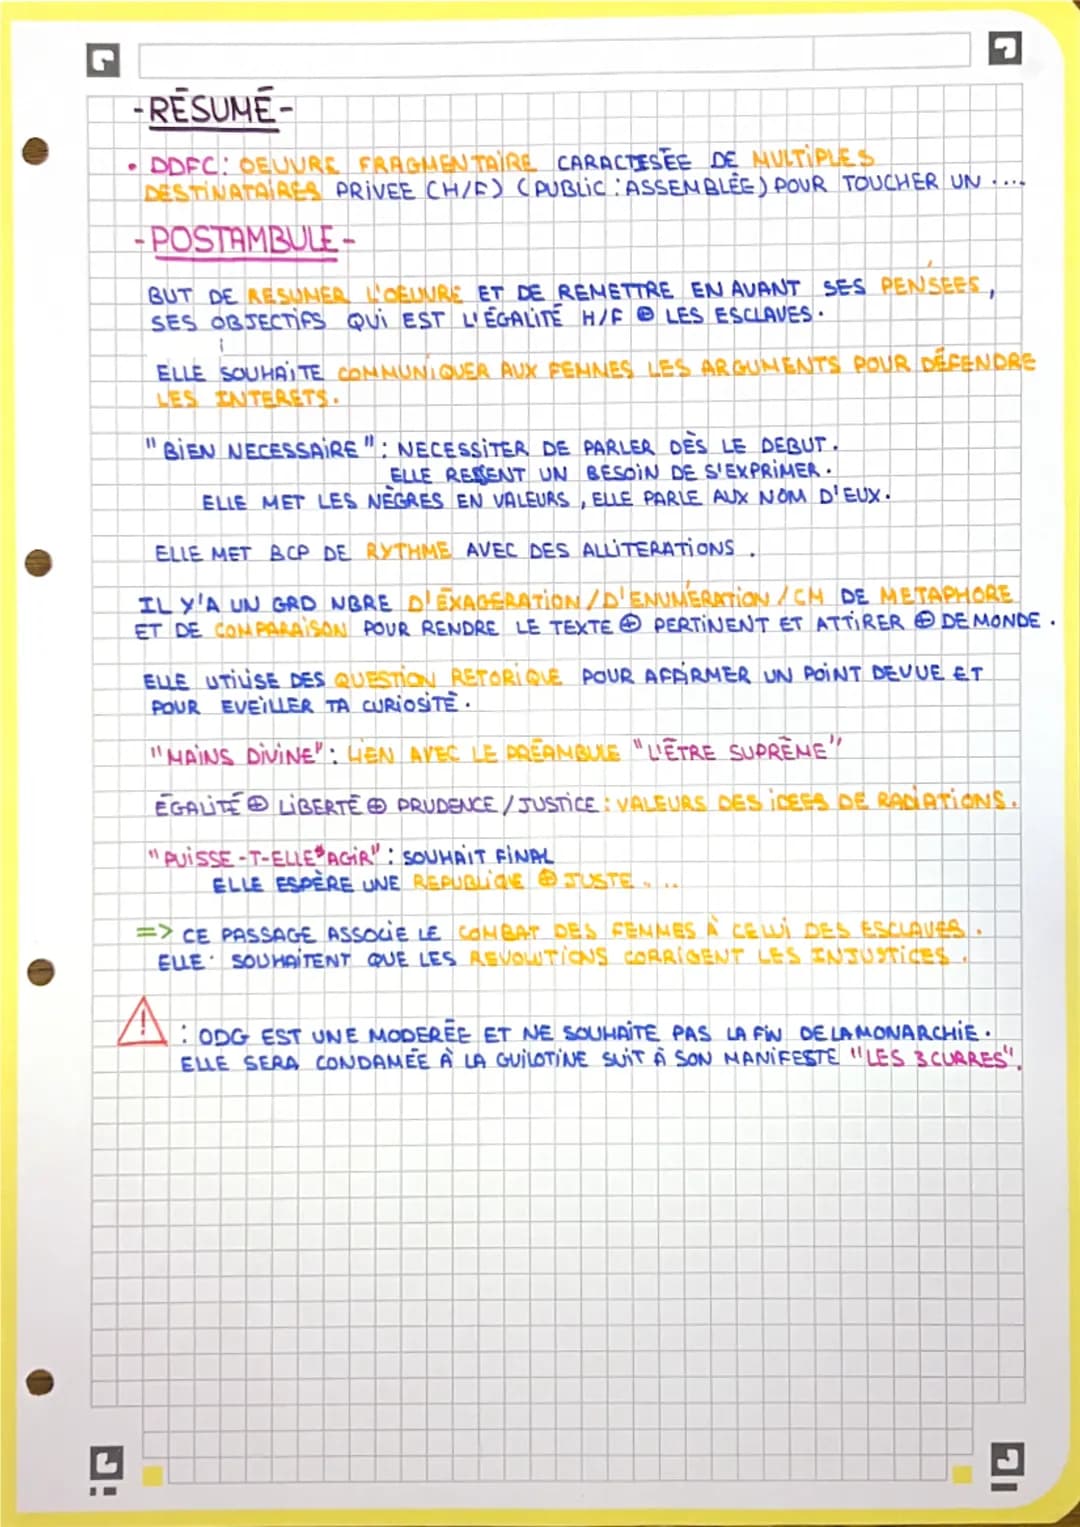 -RÉSUMÉ-
• DDFC: OEUVRE FRAGMENTAIRE CARACTESÉE DE MULTIPLES
DESTINATAIRES PRIVEE (H/F) (PUBLIC: ASSEMBLÉE) POUR TOUCHER UN ....
-POSTAMBULE-
BUT DE RESUMER L'OEUVRE ET DE REMETTRE EN AVANT SES PENSÉES,
SES OBJECTIFS QUI EST L'ÉGALITÉ H/F ⊕ LES ESCLAVES.
ELLE SOUHAITE COMMUNIQUER AUX FEMMES LES ARGUMENTS POUR DÉFENDRE
LES INTERETS.
"BIEN NECESSAIRE": NECESSITER DE PARLER DÈS LE DEBUT.
ELLE RESSENT UN BESOIN DE S'EXPRIMER.
ELLE MET LES NÈGRES EN VALEURS, ELLE PARLE AUX NOM D'EUX.
ELLE MET BCP DE RYTHME AVEC DES ALLITERATIONS.
IL Y'A UN GRD NBRE D'EXAGERATION/D'ENUMÉRATION/CM DE METAPHORE
ET DE COMPARAISON POUR RENDRE LE TEXTE ⊕ PERTINENT ET ATTIRER ⊕ DE MONDE.
ELLE UTILISE DES QUESTION RETORIQUE POUR AFFIRMER UN POINT DE VUE ET
POUR EVEILLER TA CURIOSITÉ.
"MAINS DIVINE": LIEN AVEC LE PRÉAMBULE "L'ÊTRE SUPRÊME"
ÉGALITÉ ⊕ LIBERTÉ ⊕ PRUDENCE/JUSTICE: VALEURS DES IDEES DE RADIATIONS.
"PUISSE-T-ELLE AGIR": SOUHAIT FINAL
ELLE ESPÈRE UNE REPUBLIQUE ⊕ JUSTE...
=> CE PASSAGE ASSOCIE LE COMBAT DES FEMMES À CELUI DES ESCLAVES.
ELLE SOUHAITENT QUE LES REVOLUTIONS CORRIGENT LES INJUSTICES.
⚠ : ODG EST UNE MODERÉE ET NE SOUHAITE PAS LA FIN DE LA MONARCHIE.
ELLE SERA CONDAMÉE À LA GUILOTINE SUIT À SON MANIFESTE "LES 3 CURRES".